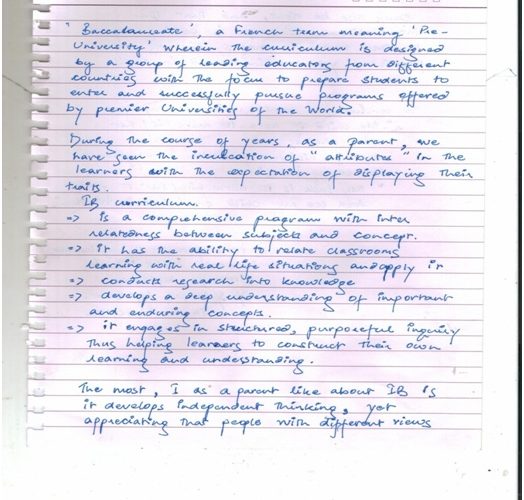 "Baccalaureate", a French term meaning 'Pre-
University' wherein the curriculum is designed
by a group of leading educators from different
countries with the focus to prepare students to
enter and successfully pursue programs offered
by premier Universities of the World.
During the course of years, as a parent, we
have seen the inculcation of "attributes" in the
learners with the expectation of displaying their
traits.
IB curriculum.
=> is a comprehensive program with inter
relatedness between subjects and concept.
=> it has the ability to relate classrooms
learning with real life situations and apply it
=> conducts research into knowledge
=> develops a deep understanding of important
and enduring concepts.
=> it engages in structured, purposeful inquiry
thus helping learners to construct their own
learning and understanding.
The most, I as a parent like about IB is
it develops independent thinking, yet
appreciating that people with different views